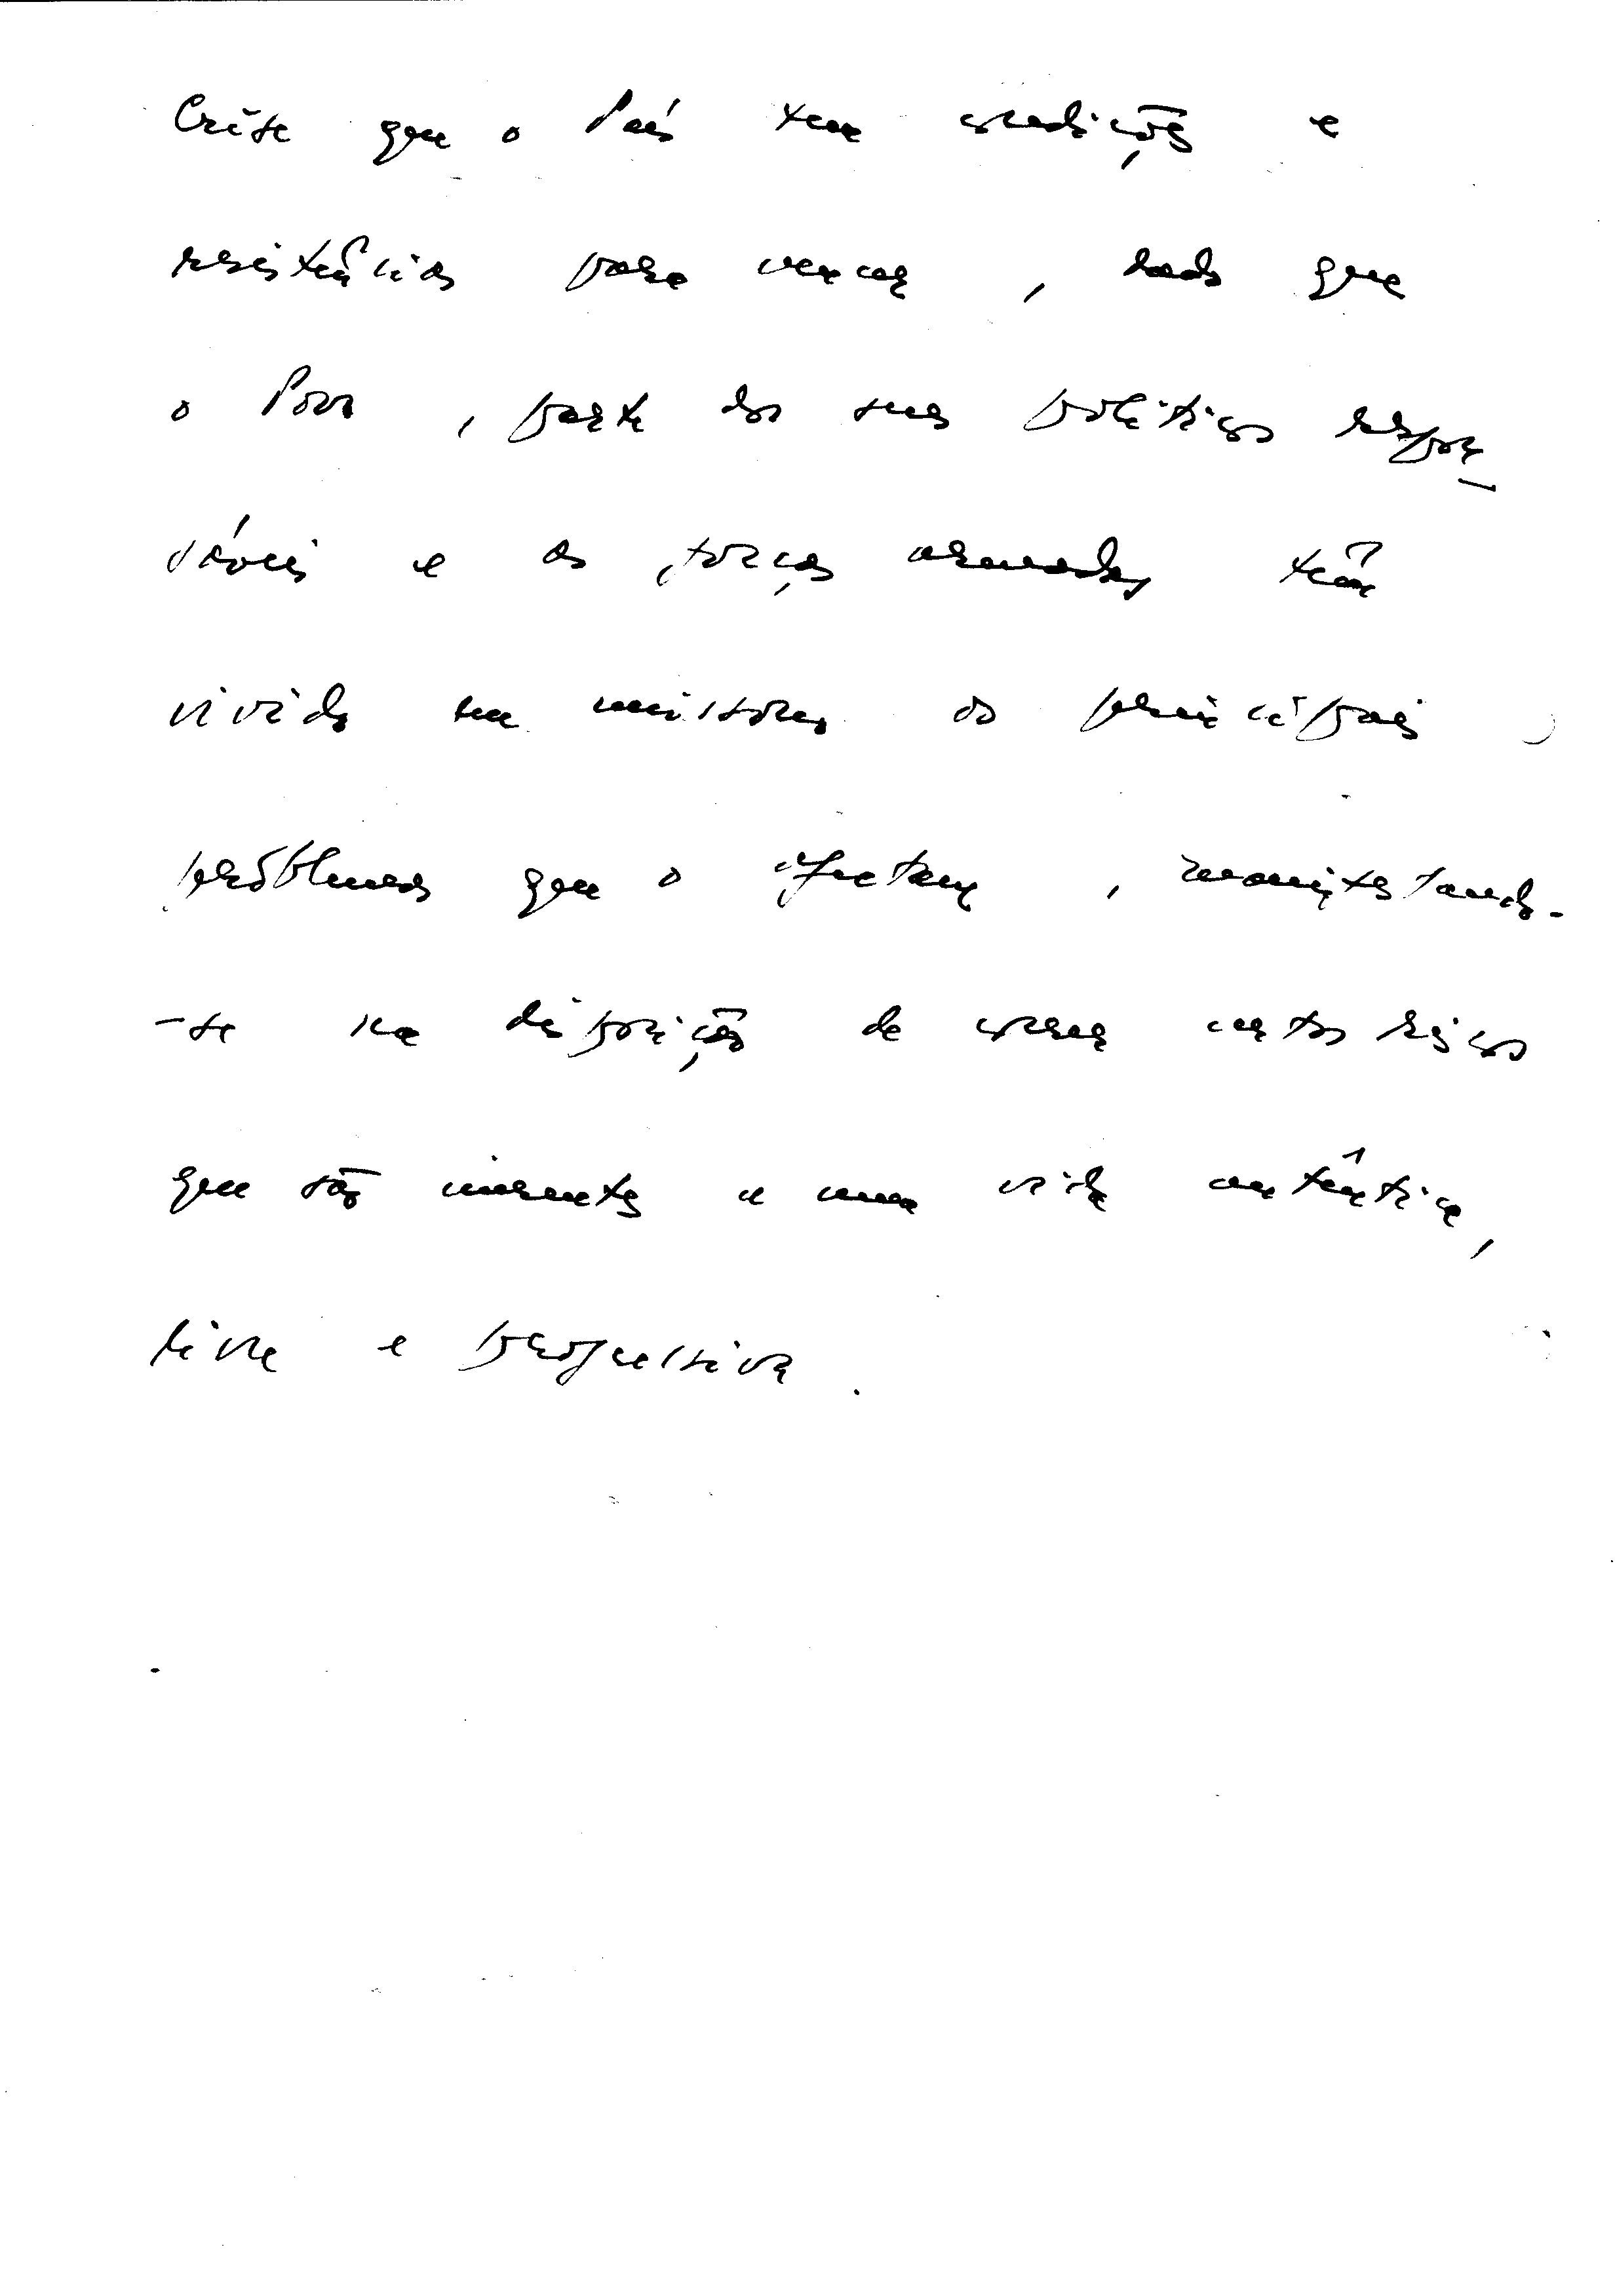 Crê-se que o País tem condições e
resistências para vencer, dado que
o Povo, parte dos seus políticos respon
sáveis e as forças armadas têm
vivido em uníssono os principais
problemas que o afectam, manifestando-
-se na disposição de correr certos riscos
que são inerentes a uma vida autêntica,
livre e progressiva.